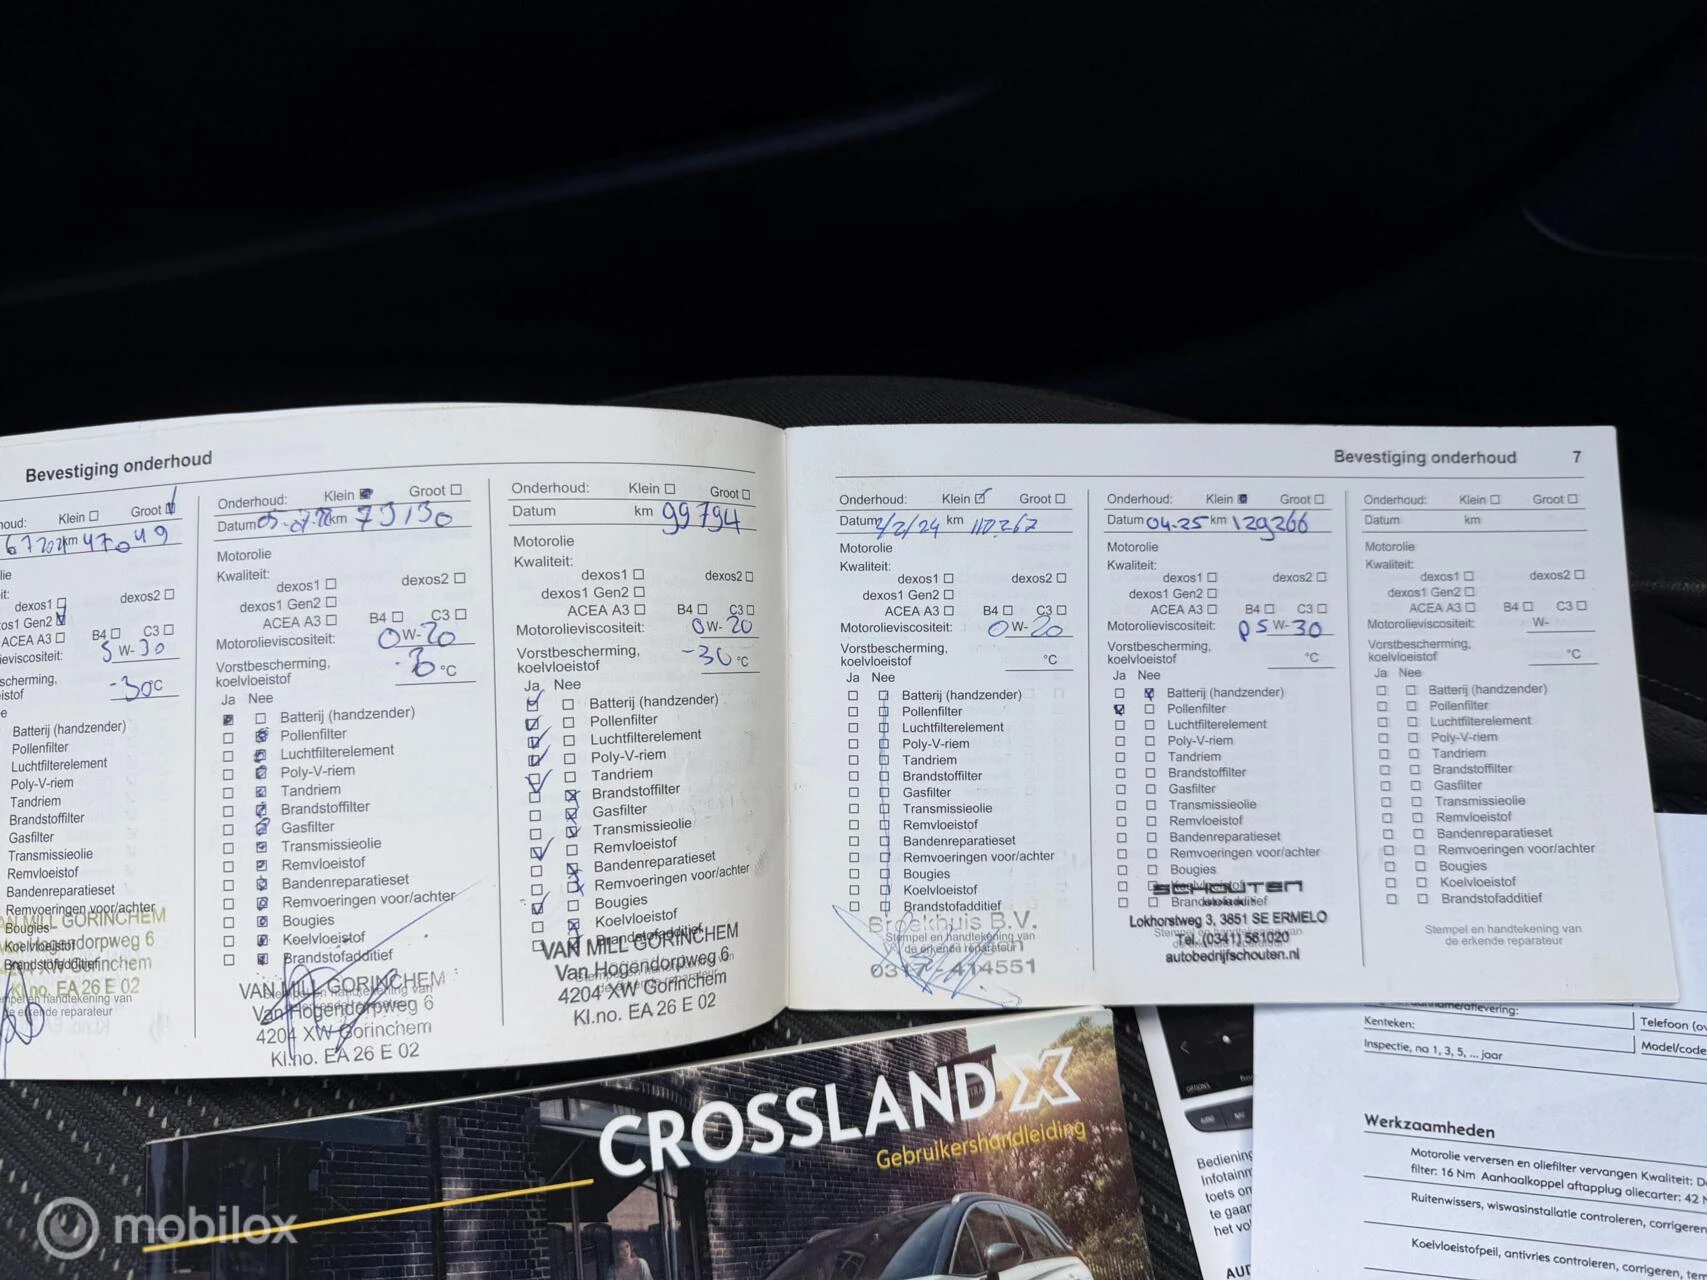 Bevestiging onderhoud
Klein Groot
km 47.049
dexos1 dexos2
ACEA A3 B4 C3
5 W-30
-30°C
Batterij (handzender)
Pollenfilter
Luchtfilterelement
Poly-V-riem
Tandriem
Brandstoffilter
Gasfilter
Transmissieolie
Remvloeistof
Bandenreparatieset
Remvoeringen voor/achter
Bougies
Koelvloeistof
Brandstofadditief
VAN MILL GORINCHEM
Van Hogendorpweg 6
4204 XW Gorinchem
Kl.no. EA 26 E 02
Onderhoud: Klein Groot
Datum km 73130
Motorolie
Kwaliteit:
dexos1 dexos2
dexos1 Gen2
ACEA A3 B4 C3
Motorolieviscositeit: 0W-20
Vorstbescherming,
koelvloeistof °C
Ja Nee
Batterij (handzender)
Pollenfilter
Luchtfilterelement
Poly-V-riem
Tandriem
Brandstoffilter
Gasfilter
Transmissieolie
Remvloeistof
Bandenreparatieset
Remvoeringen voor/achter
Bougies
Koelvloeistof
Brandstofadditief
VAN MILL GORINCHEM
Van Hogendorpweg 6
4204 XW Gorinchem
Kl.no. EA 26 E 02
Onderhoud: Klein Groot
Datum km 99794
Motorolie
Kwaliteit:
dexos1 dexos2
dexos1 Gen2
ACEA A3 B4 C3
Motorolieviscositeit: 0W-20
Vorstbescherming,
koelvloeistof -30°C
Ja Nee
Batterij (handzender)
Pollenfilter
Luchtfilterelement
Poly-V-riem
Tandriem
Brandstoffilter
Gasfilter
Transmissieolie
Remvloeistof
Bandenreparatieset
Remvoeringen voor/achter
Bougies
Koelvloeistof
Brandstofadditief
VAN MILL GORINCHEM
Van Hogendorpweg 6
4204 XW Gorinchem
Kl.no. EA 26 E 02
Bevestiging onderhoud 7
Onderhoud: Klein Groot
Datum /2/24 km 110.267
Motorolie
Kwaliteit:
dexos1 dexos2
dexos1 Gen2
ACEA A3 B4 C3
Motorolieviscositeit: 0W-20
Vorstbescherming,
koelvloeistof °C
Ja Nee
Batterij (handzender)
Pollenfilter
Luchtfilterelement
Poly-V-riem
Tandriem
Brandstoffilter
Gasfilter
Transmissieolie
Remvloeistof
Bandenreparatieset
Remvoeringen voor/achter
Bougies
Koelvloeistof
Brandstofadditief
Broekhuis B.V.
Stempel en handtekening van
de erkende reparateur
0317-414551
Onderhoud: Klein Groot
Datum 04-25 km 129266
Motorolie
Kwaliteit:
dexos1 dexos2
dexos1 Gen2
ACEA A3 B4 C3
Motorolieviscositeit: 05 W-30
Vorstbescherming,
koelvloeistof °C
Ja Nee
Batterij (handzender)
Pollenfilter
Luchtfilterelement
Poly-V-riem
Tandriem
Brandstoffilter
Gasfilter
Transmissieolie
Remvloeistof
Bandenreparatieset
Remvoeringen voor/achter
Bougies
Koelvloeistof
Brandstofadditief
SCHOUTEN
Lokhorstweg 3, 3851 SE ERMELO
Tel. (0341) 561020
autobedrijfschouten.nl
Onderhoud: Klein Groot
Datum km
Motorolie
Kwaliteit:
dexos1 dexos2
dexos1 Gen2
ACEA A3 B4 C3
Motorolieviscositeit: W-
Vorstbescherming,
koelvloeistof °C
Ja Nee
Batterij (handzender)
Pollenfilter
Luchtfilterelement
Poly-V-riem
Tandriem
Brandstoffilter
Gasfilter
Transmissieolie
Remvloeistof
Bandenreparatieset
Remvoeringen voor/achter
Bougies
Koelvloeistof
Brandstofadditief
Stempel en handtekening van
de erkende reparateur
CROSSLAND X
Gebruikershandleiding
Kenteken: Telefoon
Model/code
Inspectie, na 1, 3, 5, ... jaar
Werkzaamheden
Motorolie verversen en oliefilter vervangen Kwaliteit:
filter: 16 Nm Aanhaalkoppel aftapplug oliecarter: 42
Ruitenwissers, wiswasinstallatie controleren, corrigeren
Koelvloeistofpeil, antivries controleren, corrigeren,
OPTIONS
mobilox